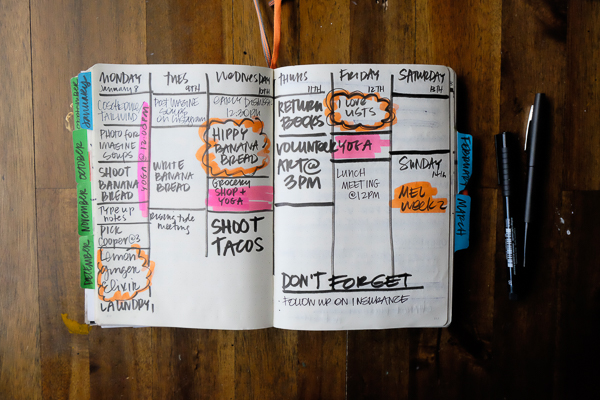 MONDAY
January 8
TAILWIND
PHOTO FOR
IMAGINE
SOUPS
SHOOT
BANANA
BREAD
TYPE UP
notes
PICK
COOPER@3
Lemon
Ginger
Elixir
LAUNDRY
YOGA @ 12:00PM
TUES
9TH
POST IMAGINE
SOUPS
ON INSTAGRAM
WRITE
BANANA
BREAD
Rising tide
meeting
WEDNESDAY
10TH
12:30PM
HIPPY
BANANA
BREAD
GROCERY
SHOP +
YOGA
SHOOT
TACOS
THURS
11TH
RETURN
BOOKS
VOLUNTEER
ART@
3PM
FRIDAY
12TH
I LOVE
LISTS
YOGA
LUNCH
MEETING
@12PM
SATURDAY
13TH
SUNDAY
14th
MEL
WEEK 2
DON'T FORGET
FOLLOW UP ON INSURANCE
JANUARY
OCTOBER
NOVEMBER
DECEMBER
FEBRUARY
MARCH